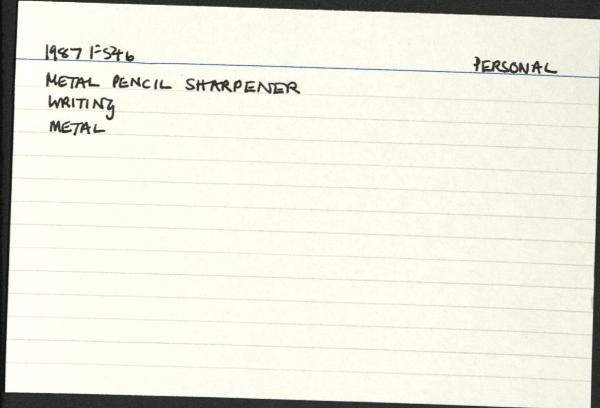 1987 1-546
PERSONAL
METAL PENCIL SHARPENER
WRITING
METAL